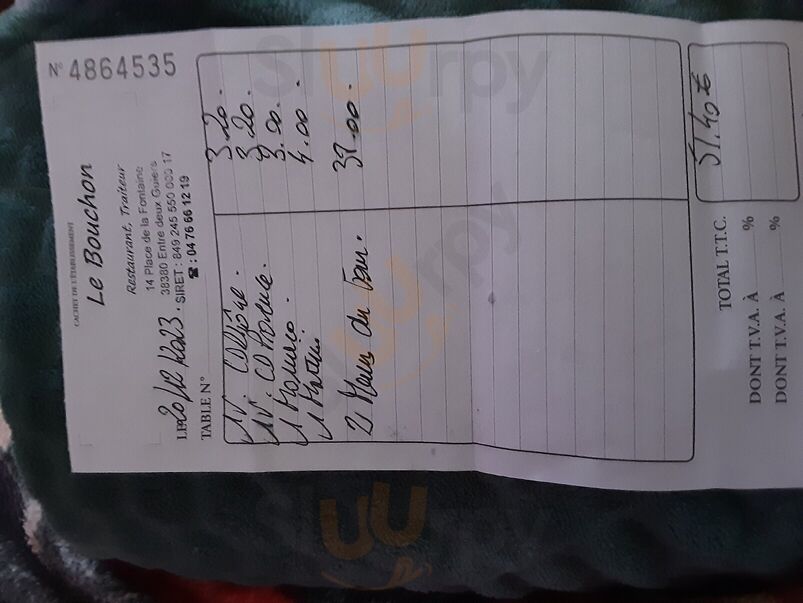 N° 4864535
CACHET DE L'ÉTABLISSEMENT
Le Bouchon
Restaurant, Traiteur
14 Place de la Fontaine
38380 Entre deux Guiers
SIRET : 849 245 550 000 17
☎ : 04 76 66 12 19
LE 20/12/2023
TABLE N°
1 V. 3.20.
1 V. 3.20.
1 3.00.
1 4.00.
2 Menu du 38.00.
TOTAL T.T.C. 51.40 €
DONT T.V.A. À %
DONT T.V.A. À %
Sluurpy
Sluurpy
Sluurpy